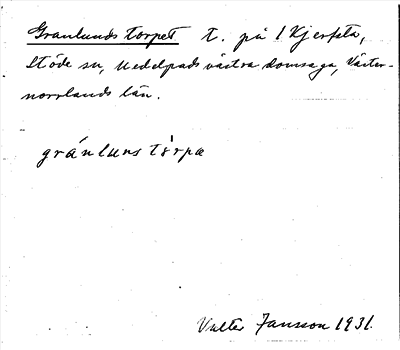 Granlundstorpet t. på 1 Kjerfsta,
Stöde sn, Medelpads västra domsaga, Väster-
norrlands län.
gránlunstòrpa
Valter Jansson 1931.